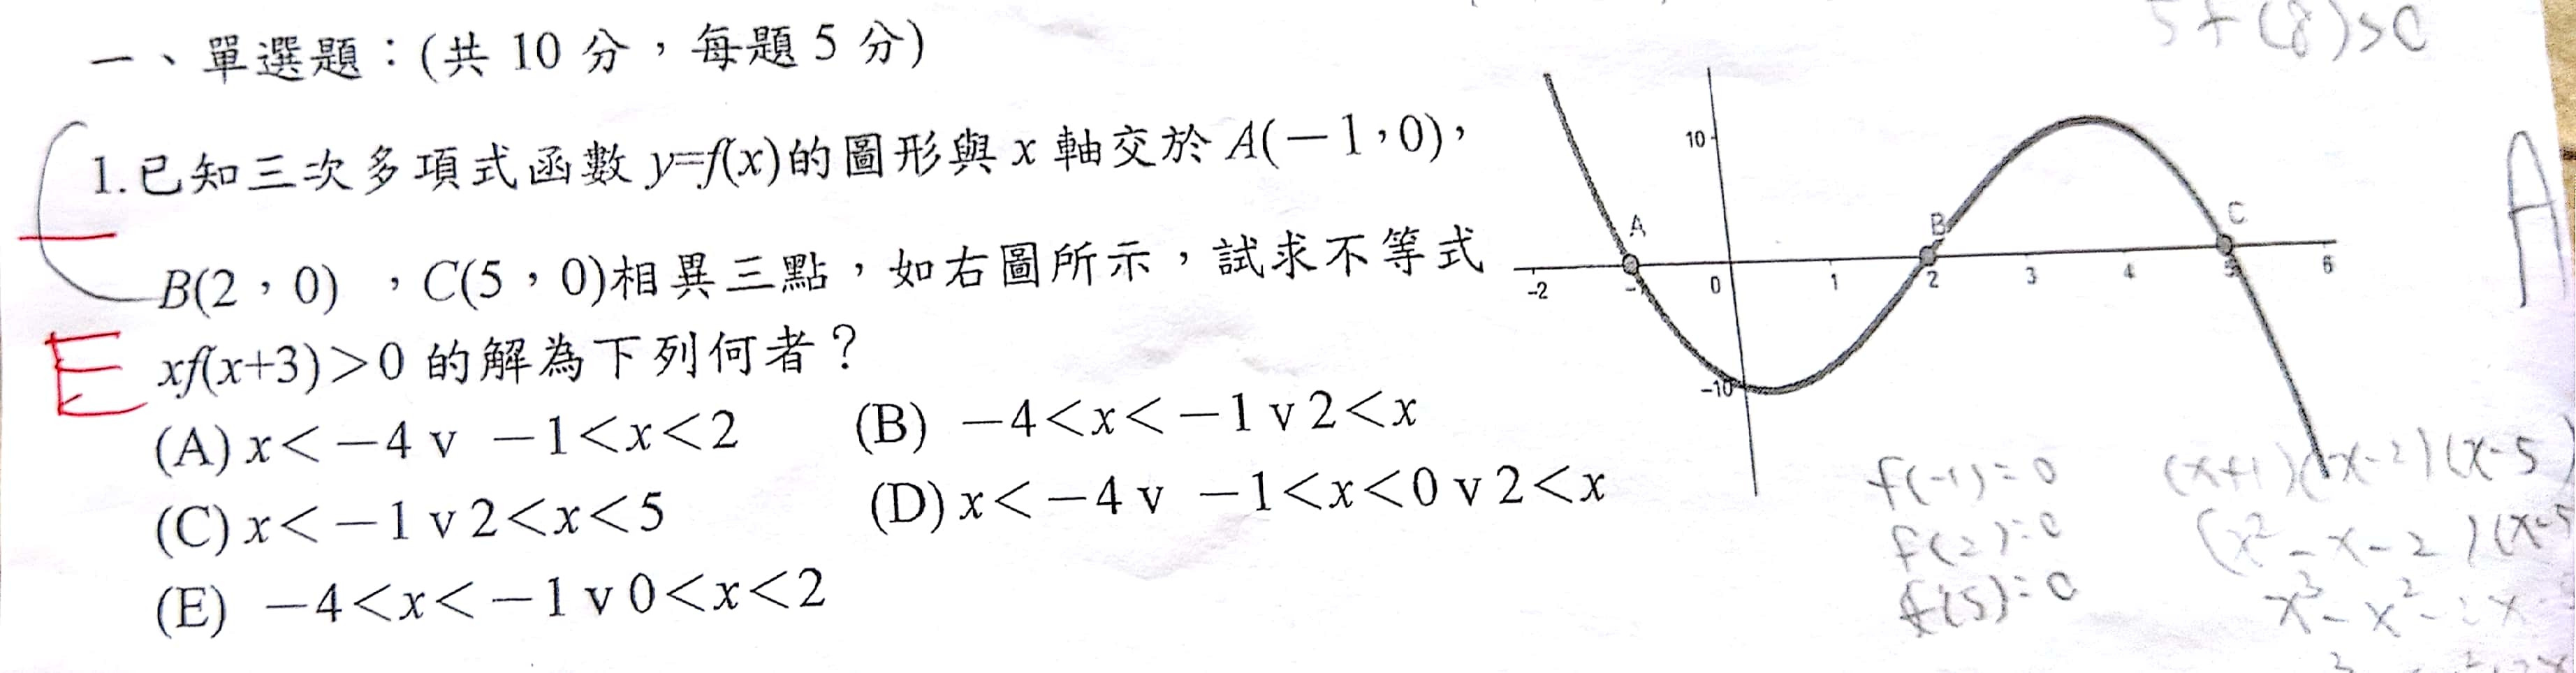 5f(8)>0
一、單選題：(共 10 分，每題 5 分)
1.已知三次多項式函數 y=f(x)的圖形與 x 軸交於 A(－1，0)，
B(2，0) ，C(5，0)相異三點，如右圖所示，試求不等式
xf(x+3)＞0 的解為下列何者？
E
(A) x＜－4 v －1＜x＜2 (B) －4＜x＜－1 v 2＜x
(C) x＜－1 v 2＜x＜5 (D) x＜－4 v －1＜x＜0 v 2＜x
(E) －4＜x＜－1 v 0＜x＜2
10
A B C
-2 -1 0 1 2 3 4 5 6
-10
A
f(-1)=0 (x+1)(x-2)(x-5)
f(2)=0 (x²-x-2)(x-5
f(5)=0 x³-x²-2x